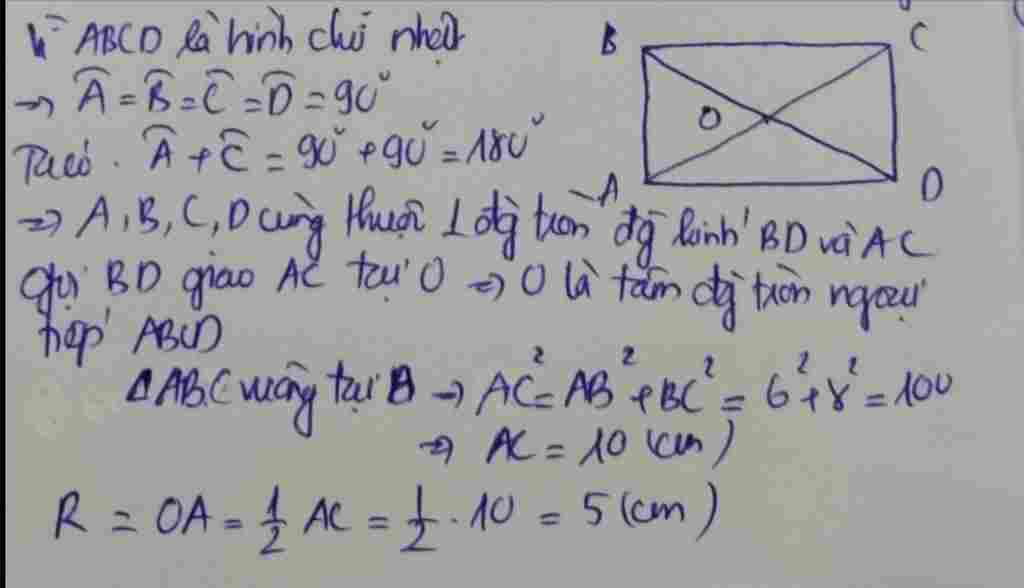 Vì ABCD là hình chữ nhật
→ Â = B̂ = Ĉ = D̂ = 90°
Ta có. Â + Ĉ = 90° + 90° = 180°
B C
O
A D
=> A, B, C, D cùng thuộc 1 đg tròn đg kính BD và AC
Gọi BD giao AC tại O => O là tâm đg tròn ngoại
tiếp ABCD
ΔABC vuông tại B → AC² = AB² + BC² = 6² + 8² = 100
=> AC = 10 (cm)
R = OA = 1/2 AC = 1/2 . 10 = 5 (cm)